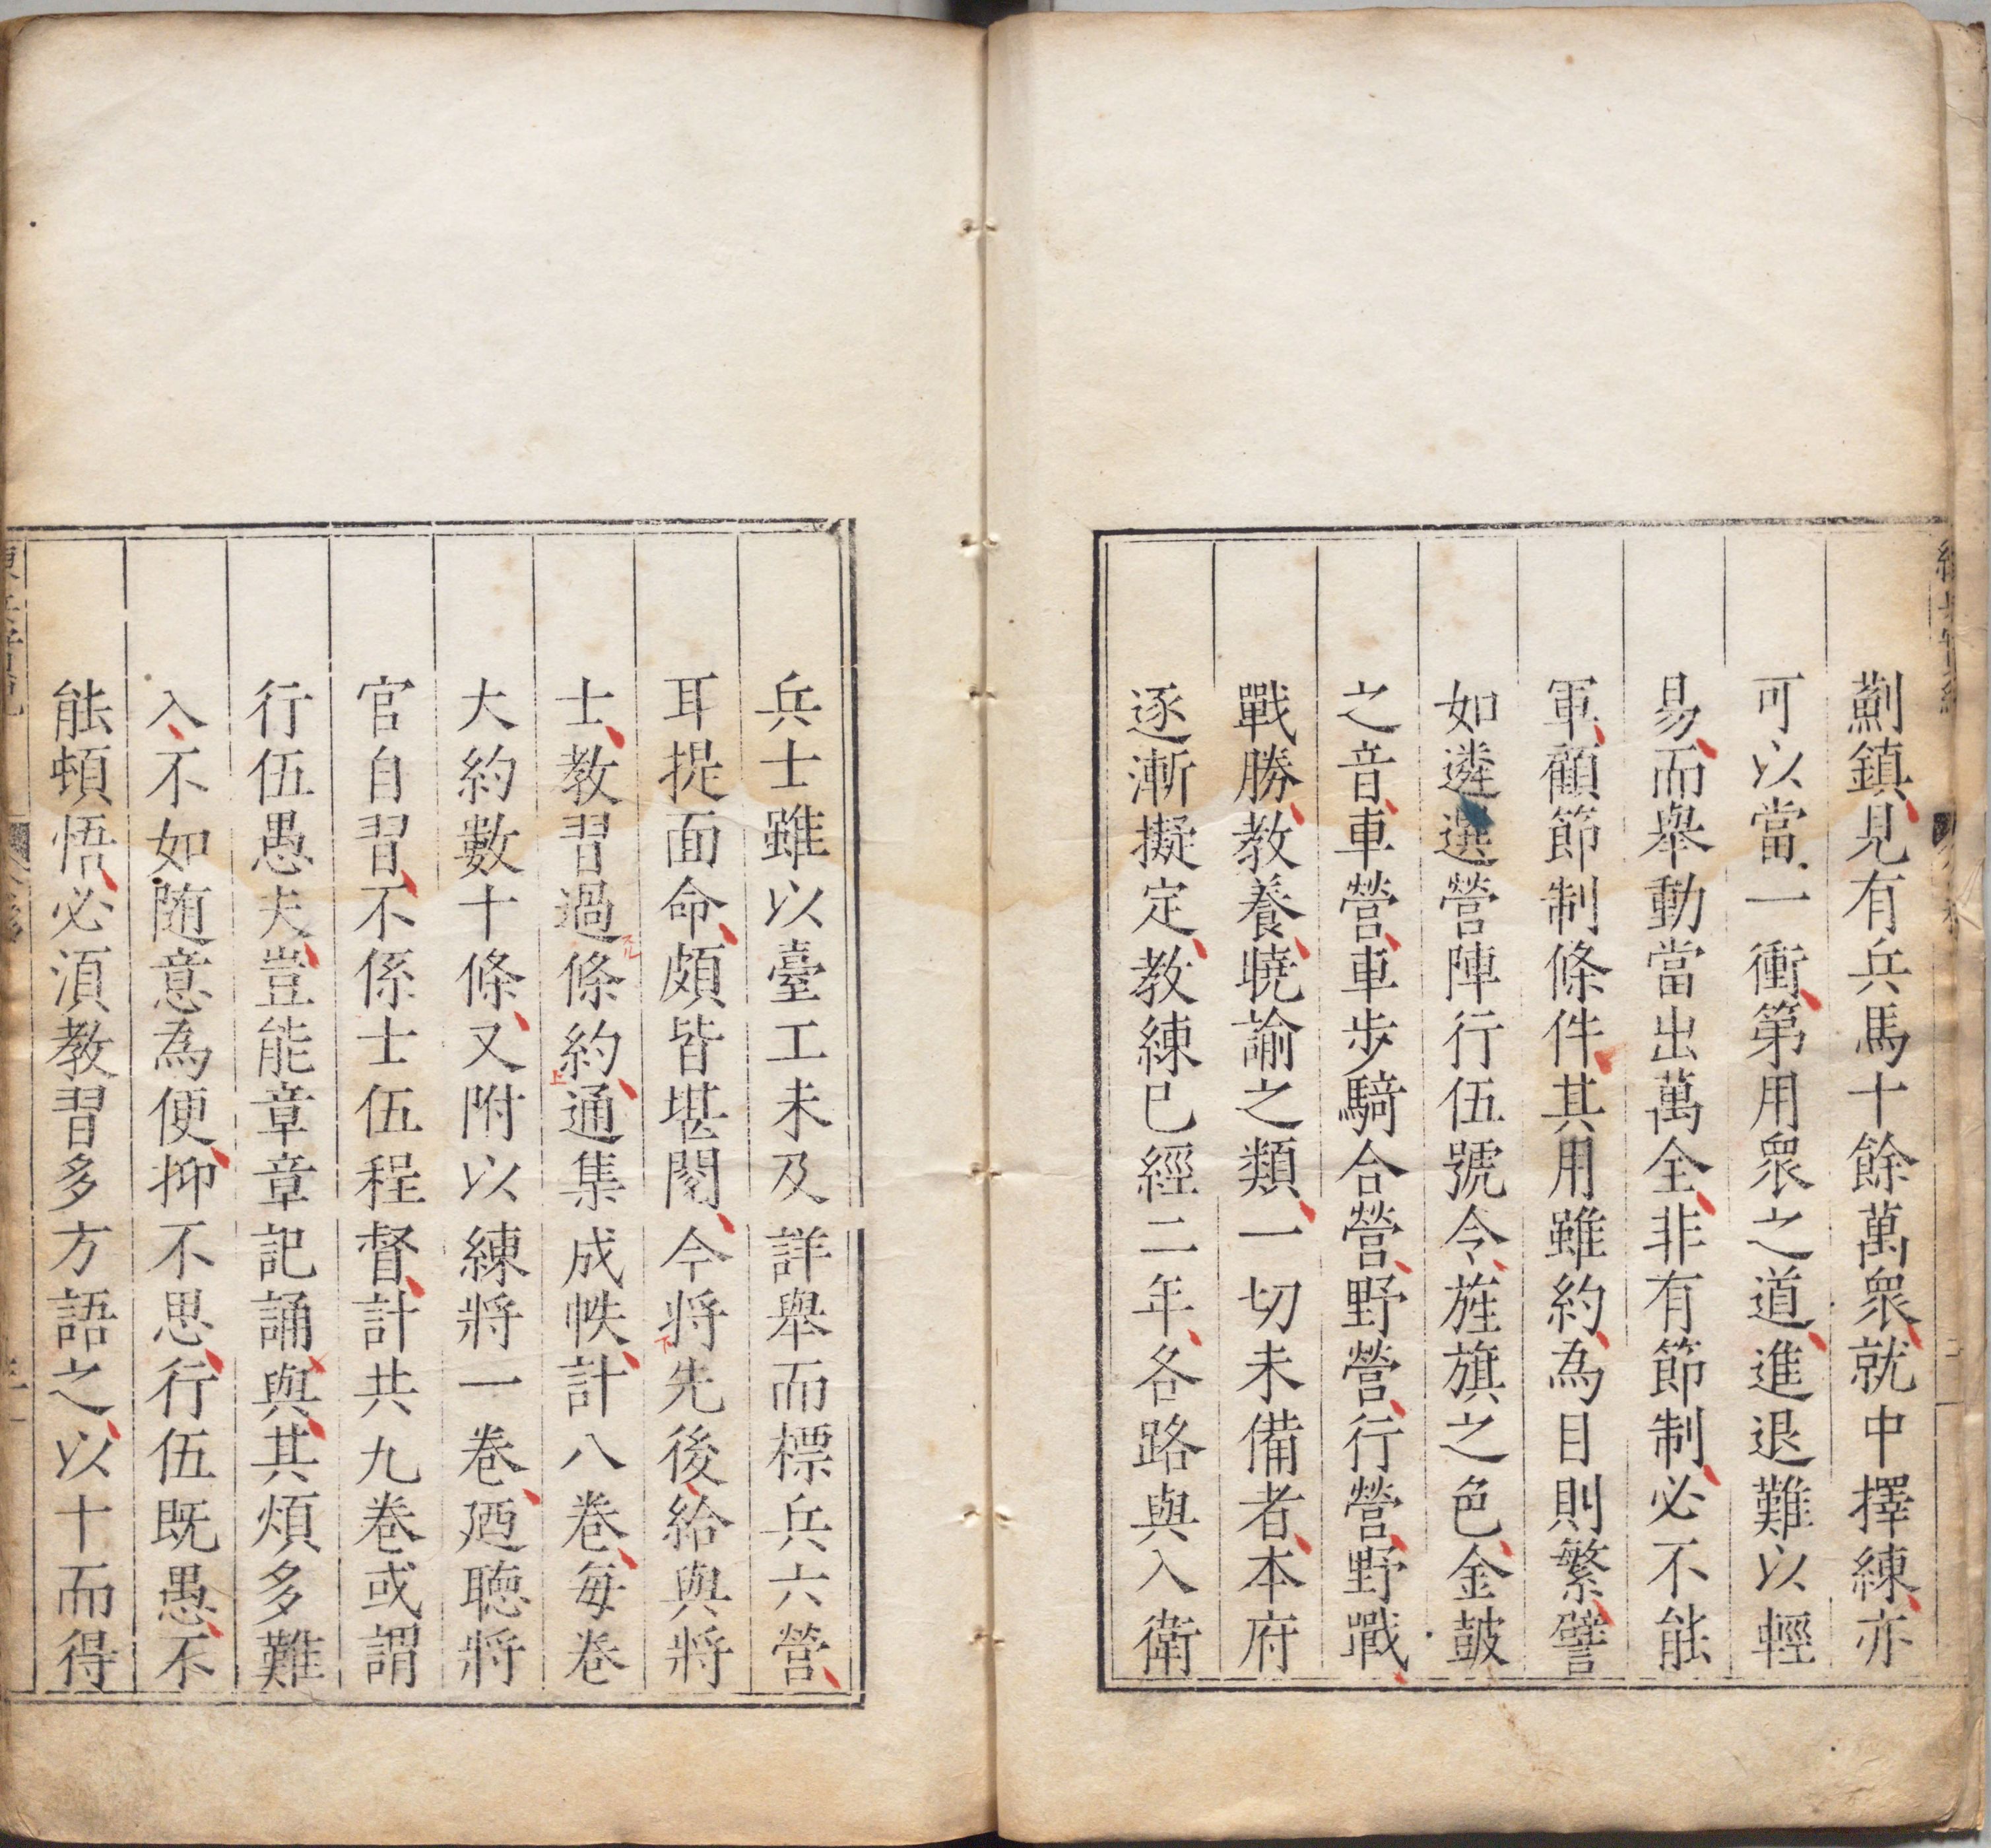 薊鎮見有兵馬十餘萬衆就中擇練亦
可以當一衝第用衆之道進退難以輕
易而舉動當出萬全非有節制必不能
軍顧節制條件其用雖約為目則繁譬
如遴選營陣行伍號令旌旗之色金鼓
之音車營車步騎合營野營行營野戰
戰勝教養曉諭之類一切未備者本府
逐漸擬定教練已經二年各路與入衛
兵士雖以臺工未及詳舉而標兵六營
耳提面命頗皆堪閱今將先後給與將
士教習過條約通集成帙計八卷每卷
大約數十條又附以練將一卷廼聽將
官自習不係士伍程督計共九卷或謂
行伍愚夫豈能章章記誦與其煩多難
入不如随意為便抑不思行伍既愚不
能頓悟必須教習多方語之以十而得